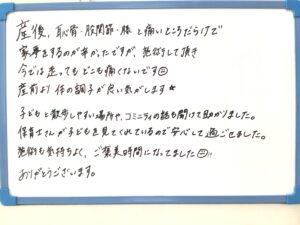 産後、恥骨・股関節・膝と痛いところだらけで
家事をするのが辛かったですが、施術して頂き
今では走ってもどこも痛くないです☺
産前より体の調子が良い気がします★
子どもと散歩しやすい場所や、コミニティの話も聞けて助かりました。
保育士さんが子どもを見てくれているので安心して過ごせました。
施術も気持ちよく、ご褒美時間になってました☺!!
ありがとうございます。